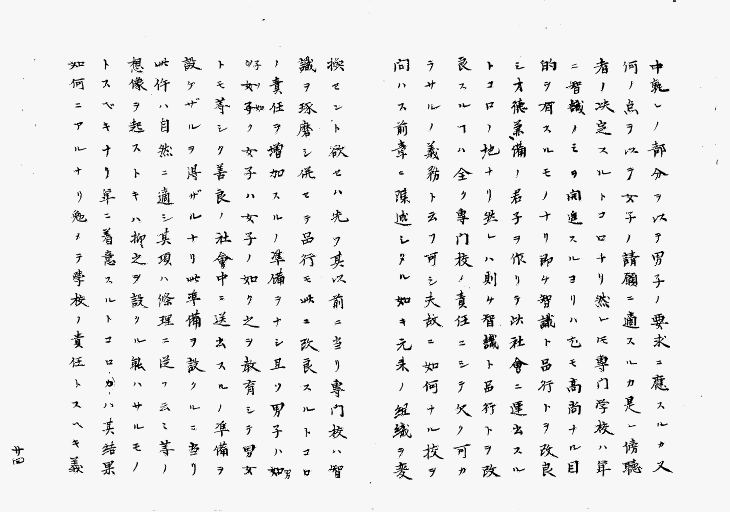 中孰レノ部分ヲ以テ男子ノ要求ニ應スルカ又
何ノ点ヲ以テ女子ノ請願ニ適スルカ是レ傍聴
者ノ决定スルトコロナリ然レ𪜈専門学校ハ単
ニ智識ノミヲ開進スルヨリハ尤モ高尚ナル目
的ヲ有スルモノナリ即ケ智識ト品行トヲ改良
シ才德兼備ノ君子ヲ作リテ以社會ニ運出スル
トコロノ地ナリ然レハ則ケ智識ト品行トヲ改
良スルヿハ全ク専門校ノ責任ニシテ欠ク可カ
ラサルノ義務ト云フ可シ夫故ニ如何ナル校ヲ
問ハス前章ニ陳述シタル如キ元来ノ組織ヲ変
換セント欲セハ先ツ其以前ニ当リ専門校ハ智
識ヲ琢磨シ併セテ品行モ此ニ改良スルトコロ
ノ責任ヲ増加スルノ準備ヲナシ且ツ男子ハ男
子ノ如ク女子ハ女子ノ如ク之ヲ教育シテ男女
トモ等シク善良ノ社會中ニ送出スルノ準備ヲ
設ケザルヲ得ザルナリ此準備ヲ設クルニ当リ
此件ハ自然ニ適シ其項ハ條理ニ逆フ云々等ノ
想像ヲ起ストキハ抑之ヲ設クル能ハサルモノ
トスベキナリ単ニ着意スルトコロハ其結果
如何ニアルナリ勉メテ學校ノ責任トスヘキ義
廿四